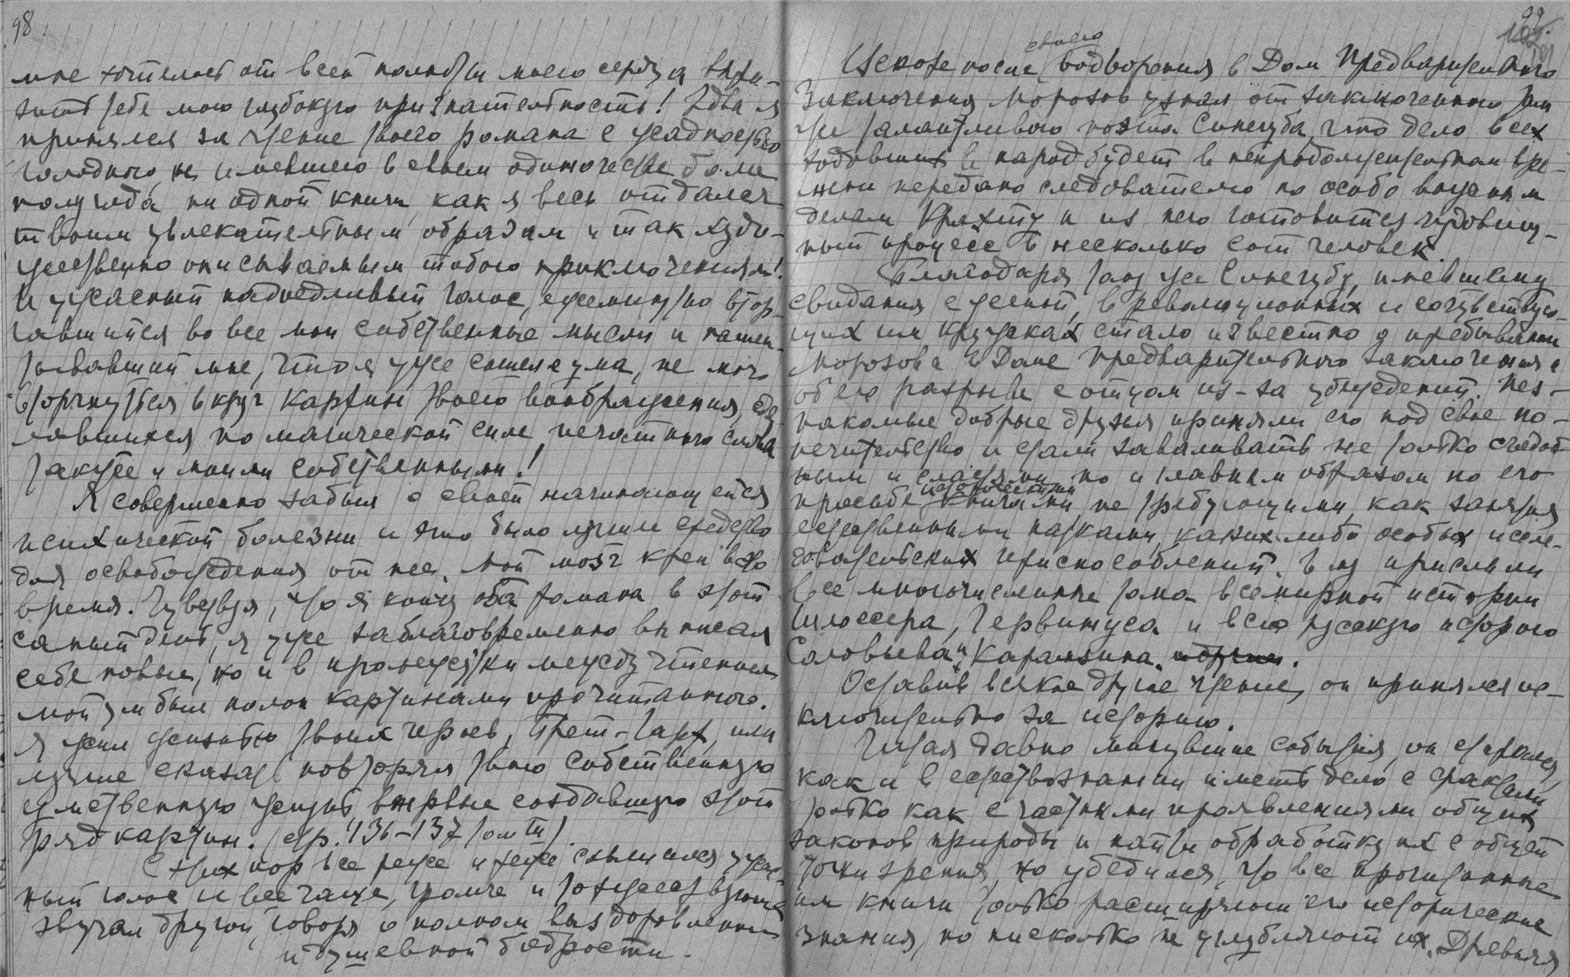 98.
мне хотелось от всей полноты моего сердца выра-
зить тебе мою глубокую признательность! Едва я
принялся за чтение твоего романа с жадностью
голодного, не имевшего в своем одиночестве более
полугода ни одной книги, как я весь отдался
твоим увлекательным образам и так худо-
жественно описываемым тобою приключениям!
И ужасный надоедливый голос, ежеминутно втор-
гавшийся во все мои собственные мысли и нашеп-
тывавший мне, что я уже сошел с ума, не мог
вторгнуться в круг картин твоего воображения, сде-
лавшихся по магической силе печатного слова
также и моими собственными!
Я совершенно забыл о своей начинающейся
психической болезни и это было лучшее средство
для освобождения от нее. Мой мозг креп в это
время. Чувствуя, что я кончу оба романа в этот
самый день, я уже заблаговременно выписал
себе новые, но и в промежутки между чтением
мой ум был полон картинами прочитанного.
Я жил жизнью твоих героев, Брет-Гарт, или
лучше сказать повторял твою собственную
умственную жизнь впервые создавшую этот
ряд картин. (стр. 136-137 том III)
С этих пор все реже и реже слышался ужас-
ный голос и все чаще, громче и торжествующе
звучал другой, говоря о полном выздоровлении
и душевной бодрости.
99
Вскоре после своего водворения в Дом Предварительного
Заключения Морозов узнал от заключенного там
же талантливого поэта Синегуба, что дело всех
ходивших в народ будет в непродолжительном вре-
мени передано следователю по особо важным
делам Крахту и из него готовится чудовищ-
ный процесс в несколько сот человек.
Благодаря тому же Синегубу, имевшему
свидания с женой, в революционных и сочувствую-
щих им кружках стало известно о пребывании
Морозова в Доме Предварительного заключения и
об его разрыве с отцом из-за убеждений. Нез-
накомые добрые друзья приняли его под свое по-
печительство и стали заваливать не только съедоб-
ным и сластями, но и главным образом по его
просьбе историческими книгами, не требующими, как занятия
естественными науками, каких-либо особых иссле-
довательских приспособлений. Ему прислали
все многочисленные тома всемирной истории
Шлоссера, Гервинуса и всю русскую историю
Соловьева и Карамзина.
Оставив всякое другое чтение, он принялся ис-
ключительно за историю.
Читая давно минувшие события, он старался,
как и в естествознании иметь дело с фактами
только как с частными проявлениями общих
законов природы и найти обработку их с общей
точки зрения, но убедился, что все прочитанные
им книги только расширяют его исторические
знания, но нисколько не углубляют их. Древняя